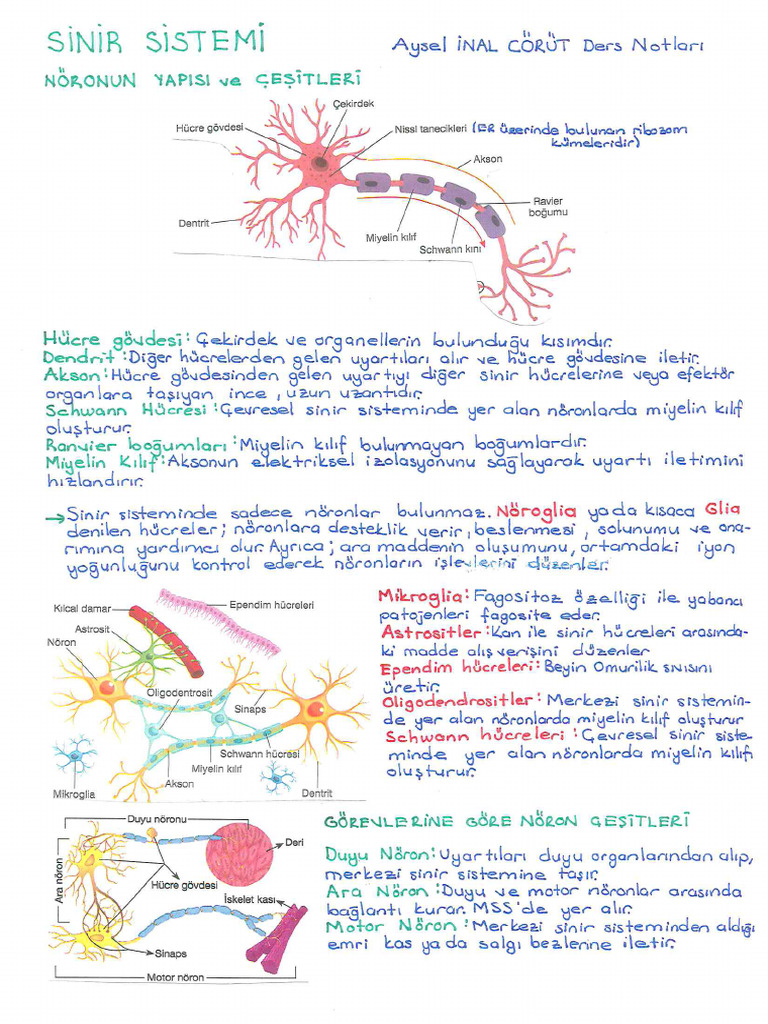 SİNİR SİSTEMİ
Aysel İNAL CÖRÜT Ders Notları
NÖRONUN YAPISI ve ÇEŞİTLERİ
Çekirdek
Hücre gövdesi
Nissl tanecikleri (ER üzerinde bulunan ribozom
kümeleridir)
Akson
Dentrit
Ravier
boğumu
Miyelin kılıf
Schwann kını
Hücre gövdesi: Çekirdek ve organellerin bulunduğu kısımdır.
Dendrit: Diğer hücrelerden gelen uyartıları alır ve hücre gövdesine iletir.
Akson: Hücre gövdesinden gelen uyartıyı diğer sinir hücrelerine veya efektör
organlara taşıyan ince, uzun uzantıdır.
Schwann Hücresi: Çevresel sinir sisteminde yer alan nöronlarda miyelin kılıf
oluşturur.
Ranvier boğumları: Miyelin kılıf bulunmayan boğumlardır.
Miyelin Kılıf: Aksonun elektriksel izolasyonunu sağlayarak uyartı iletimini
hızlandırır.
→ Sinir sisteminde sadece nöronlar bulunmaz. Nöroglia yada kısaca Glia
denilen hücreler; nöronlara desteklik verir, beslenmesi, solunumu ve ona-
rımına yardımcı olur. Ayrıca; ara maddenin oluşumunu, ortamdaki iyon
yoğunluğunu kontrol ederek nöronların işlevlerini düzenler.
Kılcal damar
Ependim hücreleri
Astrosit
Nöron
Oligodentrosit
Sinaps
Schwann hücresi
Miyelin kılıf
Akson
Mikroglia
Dentrit
Mikroglia: Fagositoz özelliği ile yabancı
patojenleri fagosite eder.
Astrositler: Kan ile sinir hücreleri arasında-
ki madde alışverişini düzenler
Ependim hücreleri: Beyin Omurilik sıvısını
üretir.
Oligodendrositler: Merkezi sinir sistemin-
de yer alan nöronlarda miyelin kılıf oluşturur
Schwann hücreleri: Çevresel sinir siste-
minde yer alan nöronlarda miyelin kılıfı
oluşturur.
Duyu nöronu
Deri
Ara nöron
Hücre gövdesi
İskelet kası
Sinaps
Motor nöron
GÖREVLERİNE GÖRE NÖRON ÇEŞİTLERİ
Duyu Nöron: Uyartıları duyu organlarından alıp,
merkezi sinir sistemine taşır.
Ara Nöron: Duyu ve motor nöronlar arasında
bağlantı kurar. MSS'de yer alır.
Motor Nöron: Merkezi sinir sisteminden aldığı
emri kas yada salgı bezlerine iletir.